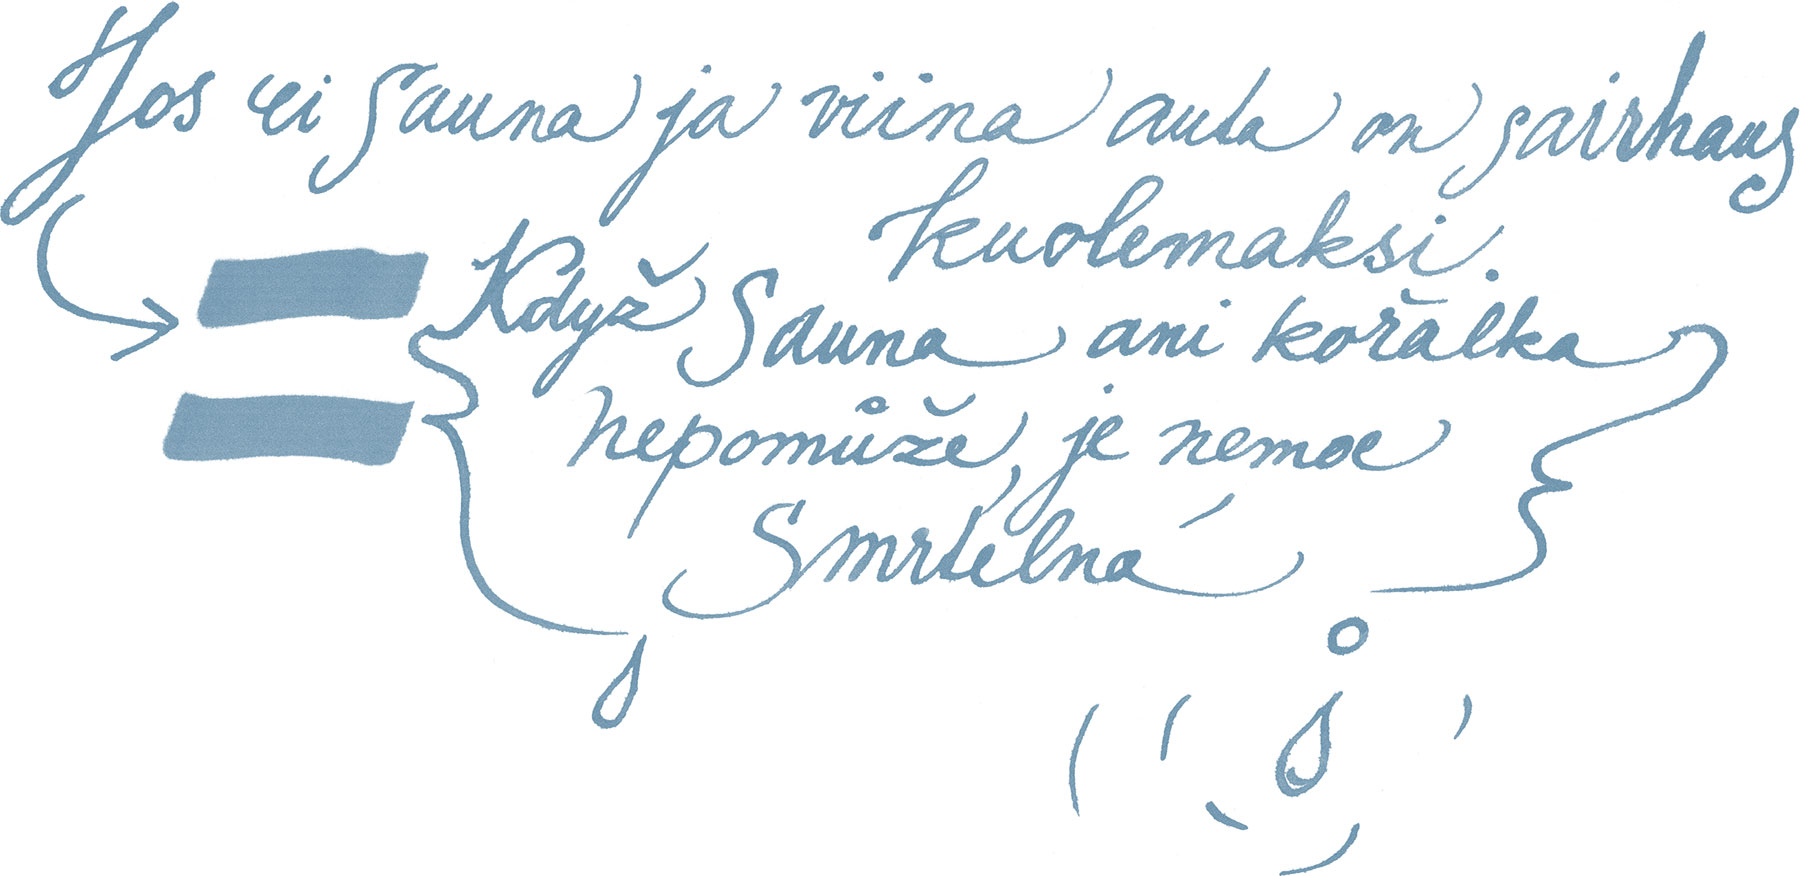 Jos ei sauna ja viina auta on sairhaus
kuolemaksi.
Když Sauna ani kořalka
nepomůže, je nemoc
Smrtelná